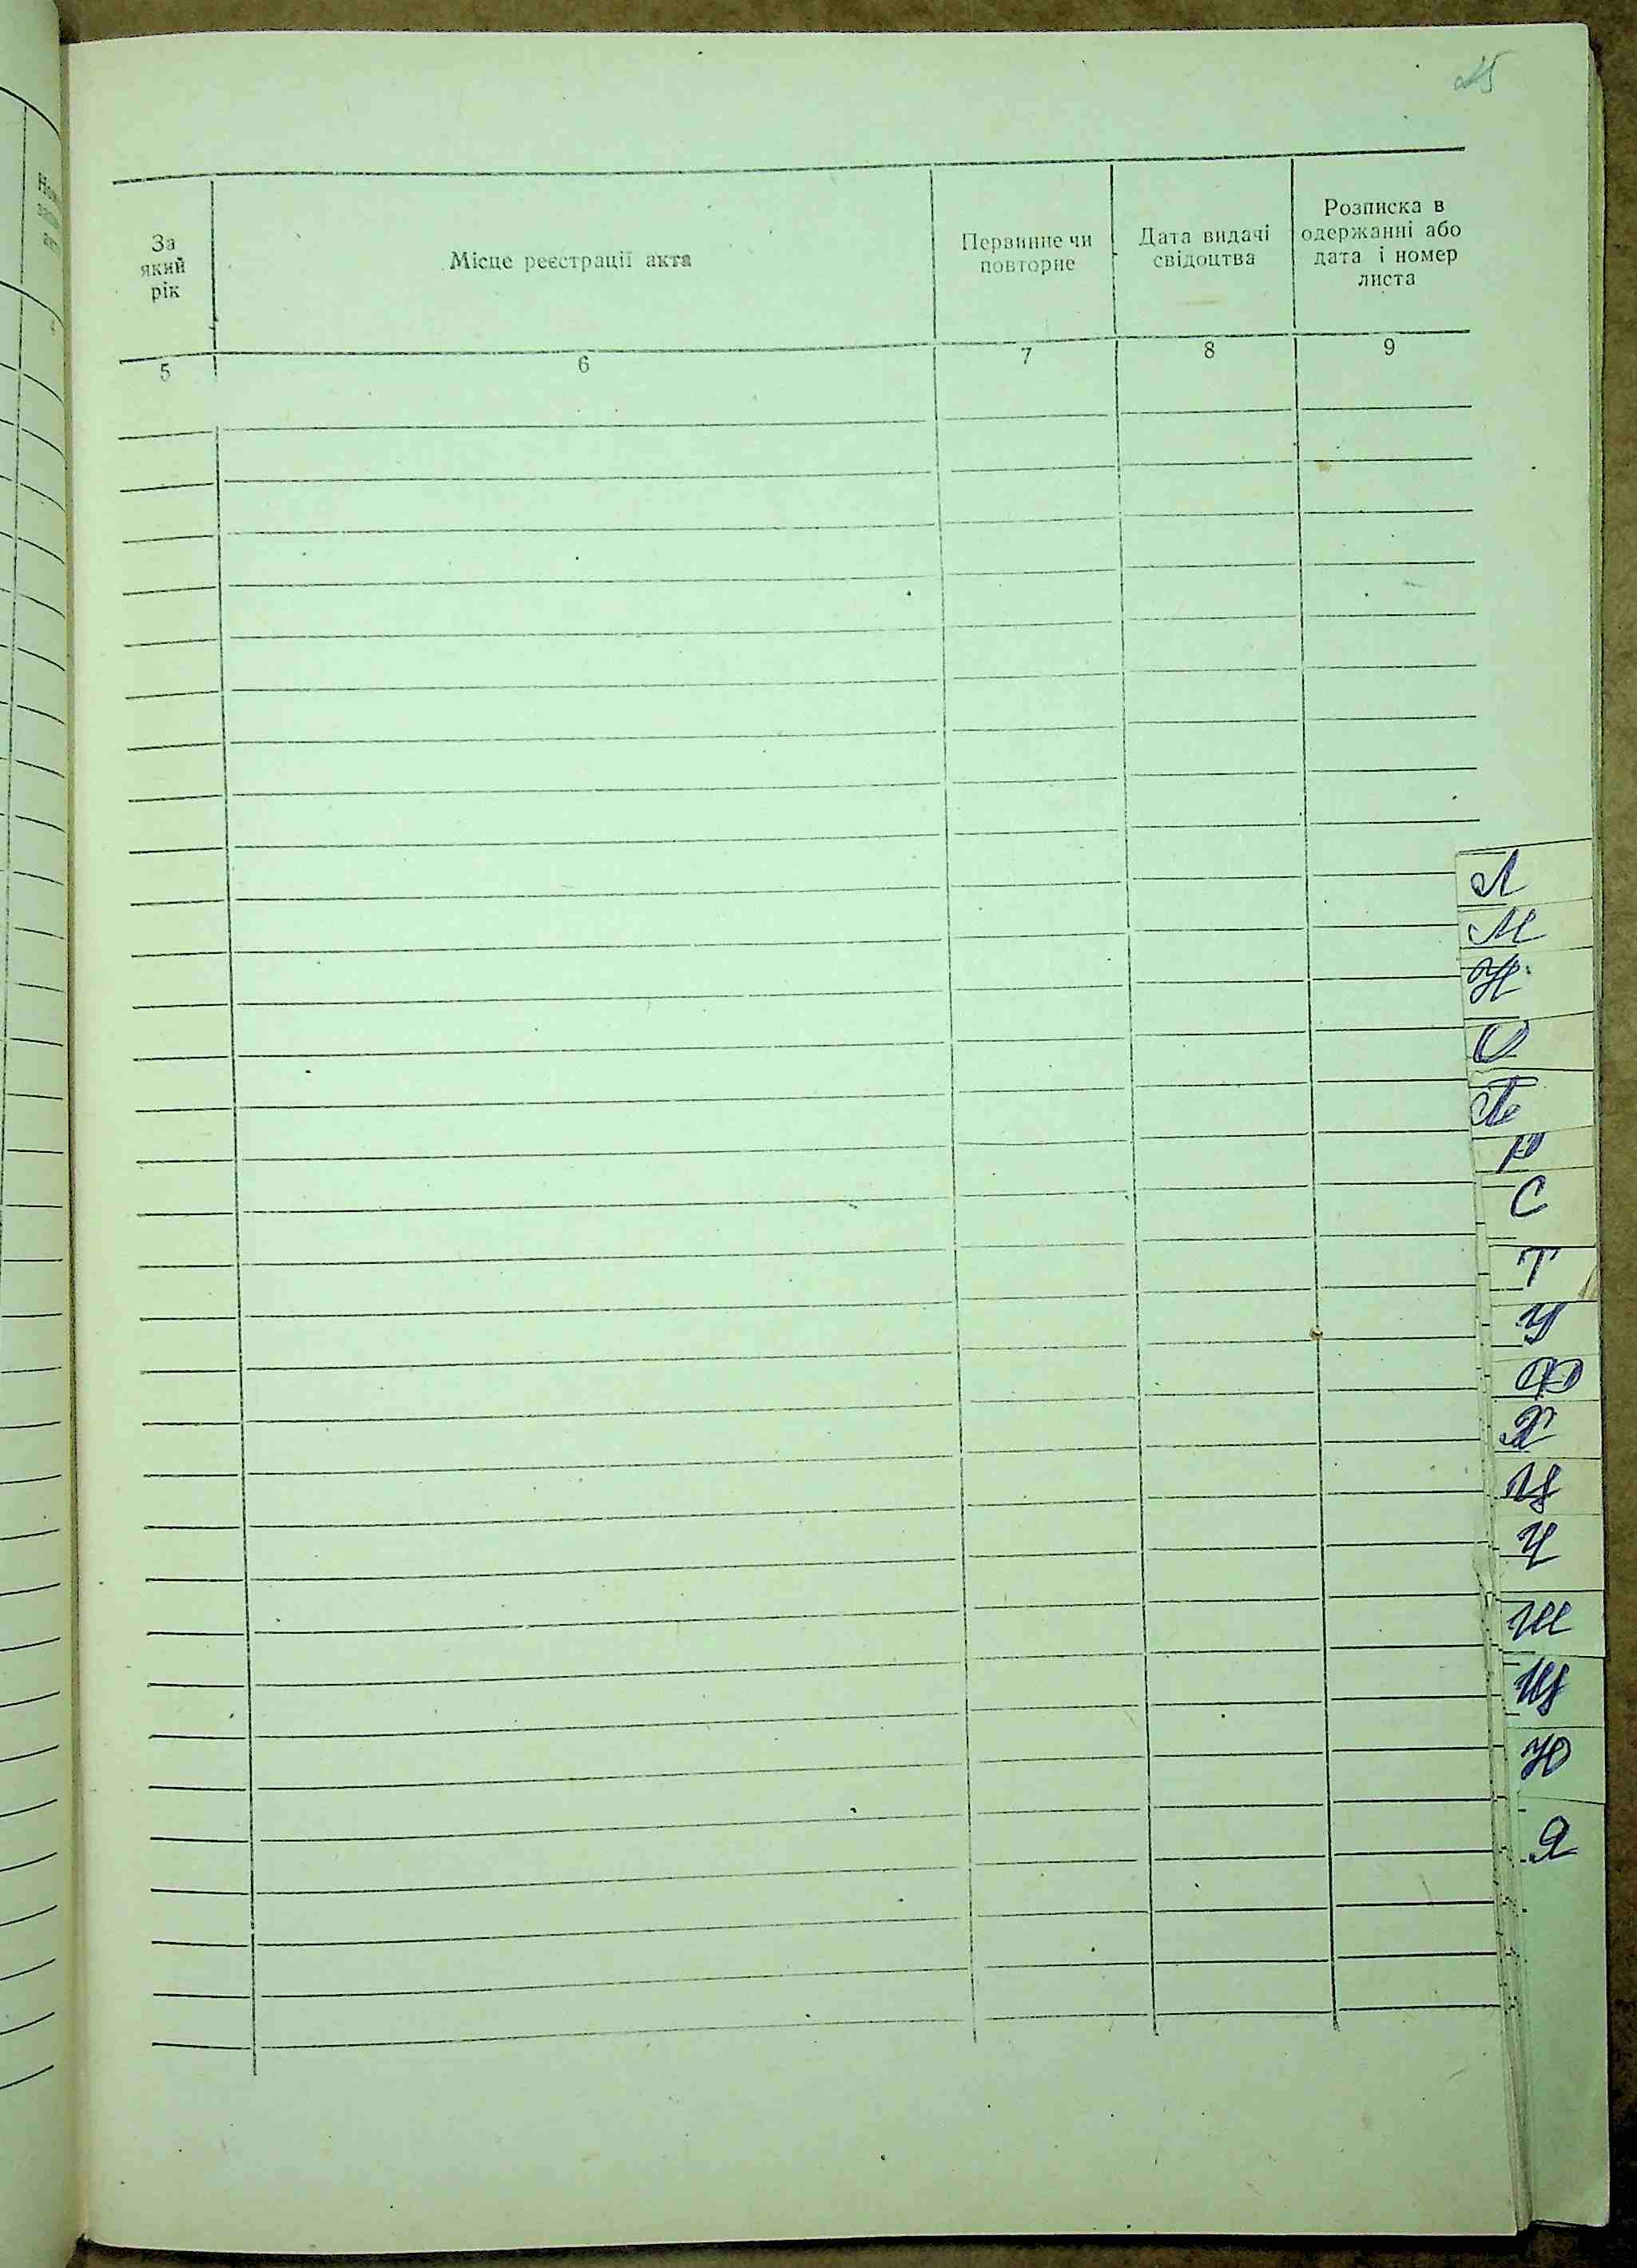 25
За
який
рік
Місце реєстрації акта
Первинне чи
повторне
Дата видачі
свідоцтва
Розписка в
одержанні або
дата і номер
листа
5
6
7
8
9
Л
М
Н
О
П
Р
С
Т
У
Ф
Х
Ц
Ч
Ш
Щ
Ю
Я